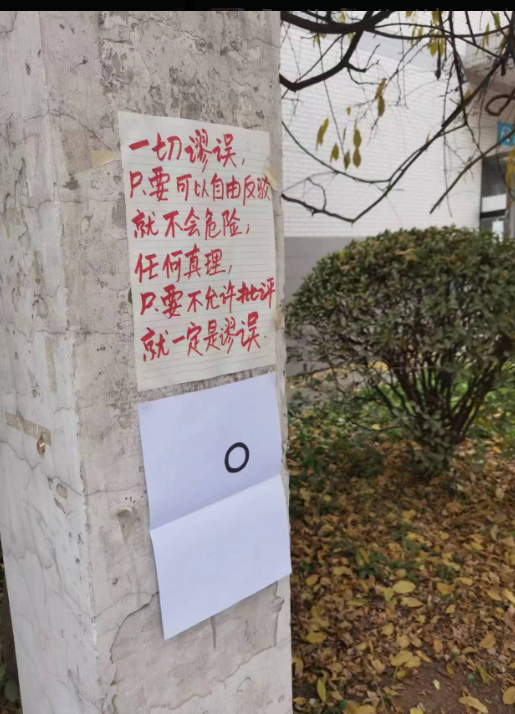 一切谬误,
只要可以自由反驳
就不会危险,
任何真理,
只要不允许批评
就一定是谬误.
O